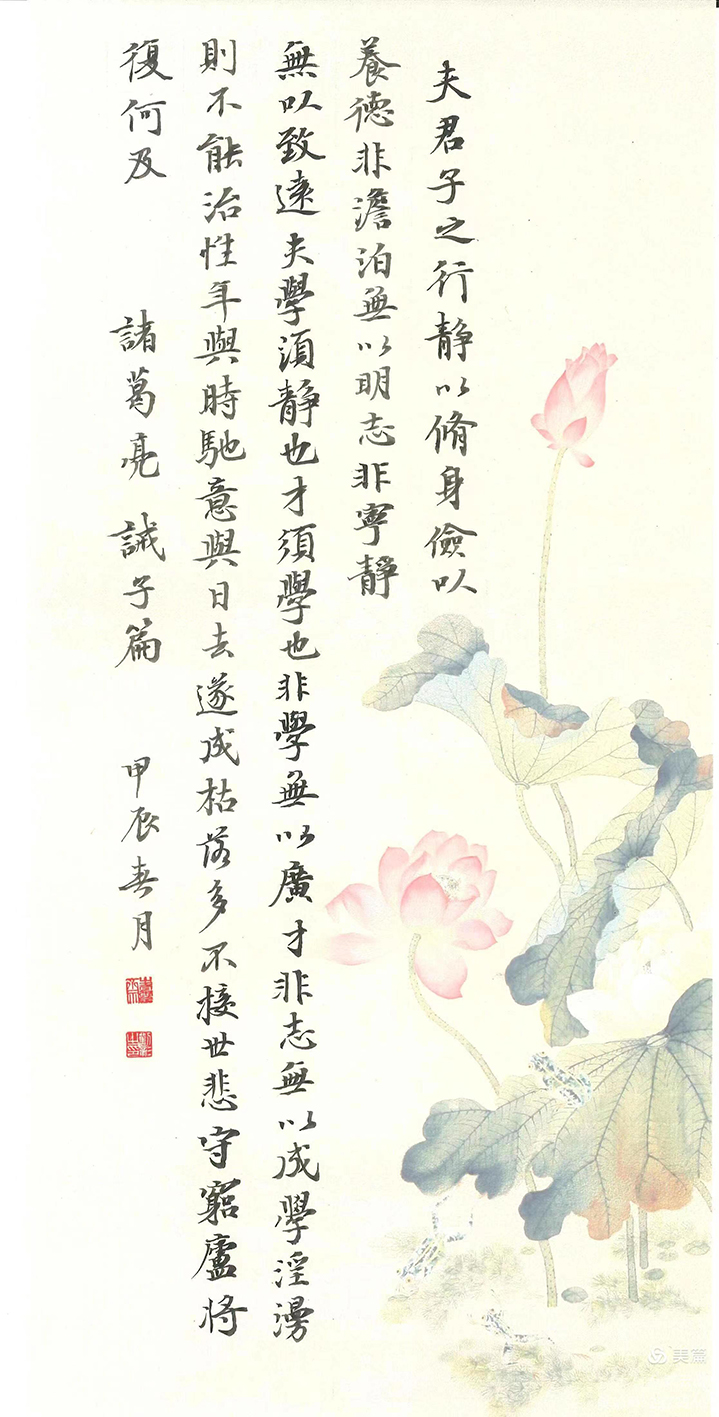 夫君子之行静以脩身儉以
養德非澹泊無以明志非寧静
無以致遠夫學須静也才須學也非學無以廣才非志無以成學淫漫
則不能治性年與時馳意與日去遂成枯落多不接世悲守窮廬将
復何及 諸葛亮 誡子篇 甲辰春月
美篇